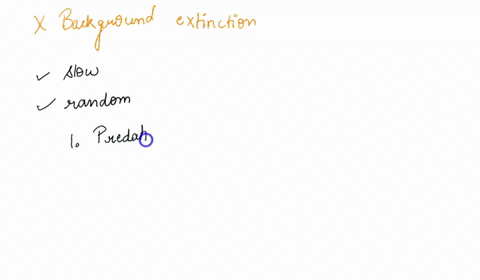 X Background extinction
✓ slow
✓ random
1. Predat